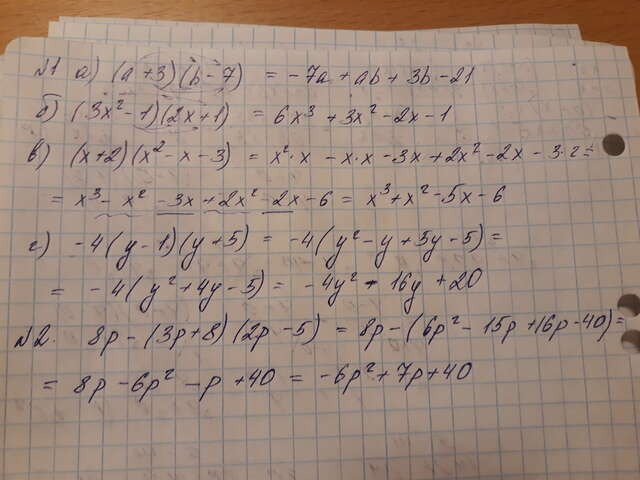 N1 а) (a+3)(b-7) = -7a+ab+3b-21
б) (3x²-1)(2x+1) = 6x³+3x²-2x-1
в) (x+2)(x²-x-3) = x²·x-x·x-3x+2x²-2x-3·2=
= x³-x²-3x+2x²-2x-6 = x³+x²-5x-6
с) -4(y-1)(y+5) = -4(y²-y+5y-5) =
= -4(y²+4y-5) = -4y²-16y+20
N2. 8p-(3p+8)(2p-5) = 8p-(6p²-15p+16p-40) =
= 8p-6p²-p+40 = -6p²+7p+40